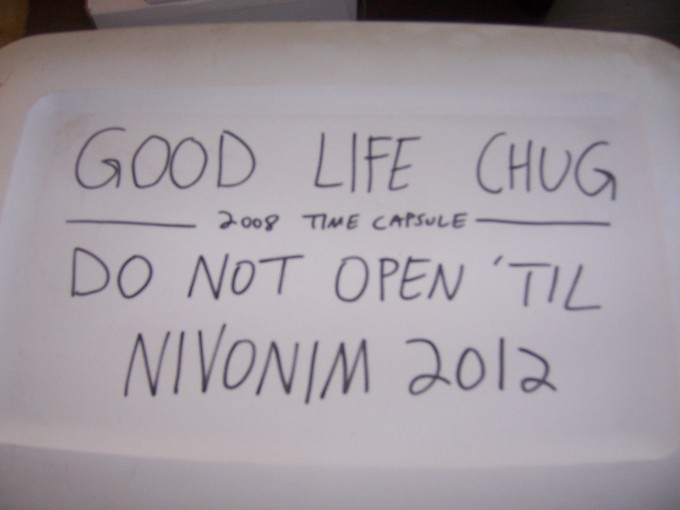 GOOD LIFE CHUG
2008 TIME CAPSULE
DO NOT OPEN 'TIL
NIVONIM 2012